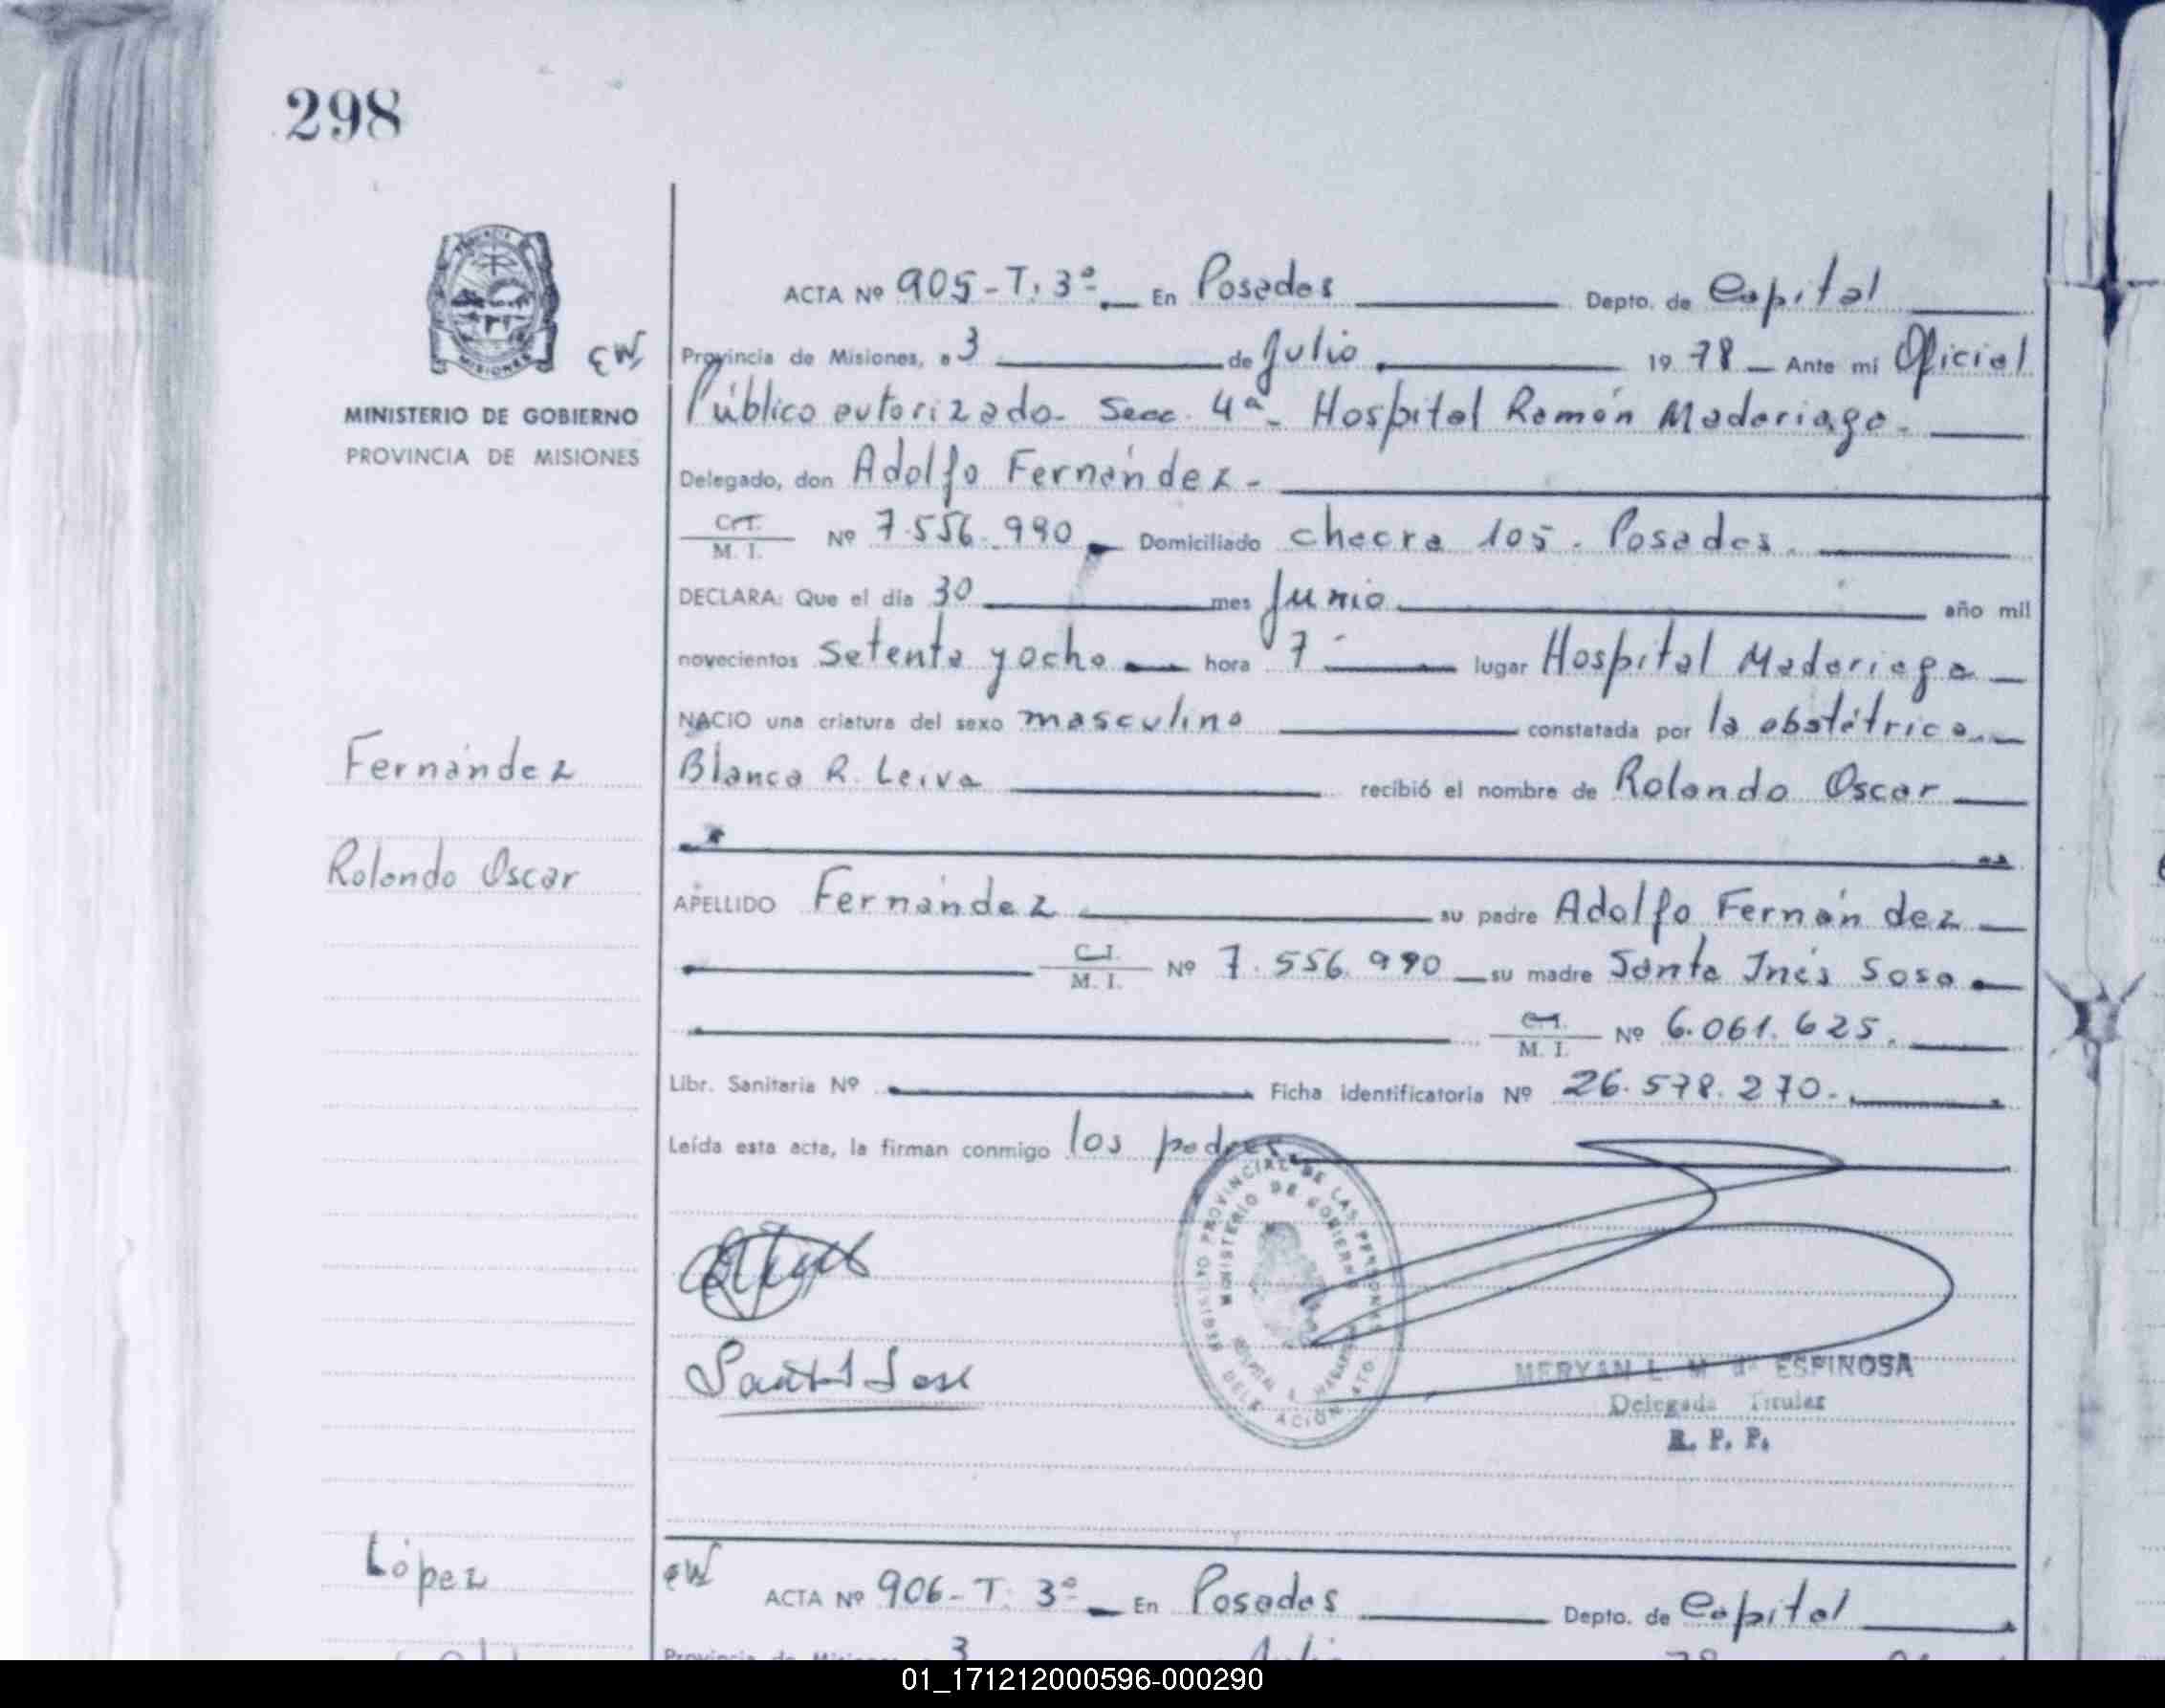 298
MISIONES
MINISTERIO DE GOBIERNO
PROVINCIA DE MISIONES
Fernández
Rolando Oscar
ACTA Nº 905-T. 3º En Posadas Depto. de Capital
Provincia de Misiones, a 3 de Julio 1978 Ante mi Oficial
Público autorizado. Secc. 4ª- Hospital Ramón Madariaga.
Delegado, don Adolfo Fernández-
C.I. M. I. Nº 7.556.990 Domiciliado chacra 105. Posadas.
DECLARA: Que el día 30 mes Junio año mil
novecientos setenta y ocho hora 7 lugar Hospital Madariaga
NACIO una criatura del sexo masculino constatada por la obstétrica
Blanca R. Leiva recibió el nombre de Rolando Oscar
APELLIDO Fernández su padre Adolfo Fernández
C.I. M. I. Nº 7.556.990 su madre Santa Inés Sosa
C.I. M. I. Nº 6.061.625.
Libr. Sanitaria Nº Ficha identificatoria Nº 26.578.270.
Leída esta acta, la firman conmigo los padres
REGISTRO PROVINCIAL DE LAS PERSONAS
MINISTERIO DE GOBIERNO
DELEGACION
MERYAN L. M de ESPINOSA
Delegada Titular
R. P. P.
López
ACTA Nº 906-T. 3º En Posadas Depto. de Capital
Provincia de Misiones, a 3 Julio 78
01_171212000596-000290